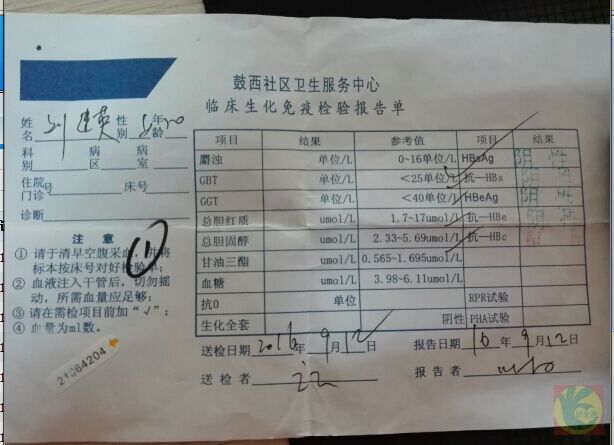 鼓西社区卫生服务中心
临床生化免疫检验报告单
姓名 刘建英 性别 年龄
科别 病区 病室
住院号 门诊 床号
诊断
注 意
① 请于清早空腹采血，并将标本按床号对好检验单；
② 血液注入干管后，切勿摇动，所需血量应足够；
③ 请在需检项目前加“√”；
④ 血量为ml数。
①
21364204
项目 结果 参考值 项目 结果
麝浊 单位/L 0~16单位/L HBsAg 阴性
GBT 单位/L <25单位/L 抗—HBs 阴性
GGT 单位/L <40单位/L HBeAg 阴性
总胆红质 umol/L 1.7~17umol/L 抗—HBe 阴性
总胆固醇 umol/L 2.33~5.69umol/L 抗—HBc
甘油三酯 umol/L 0.565~1.695umol/L
血糖 umol/L 3.98~6.11umol/L
抗0 单位 RPR试验
生化全套 阴性 PHA试验
送检日期 2016年9月12日 报告日期 16年9月12日
送检者 报告者